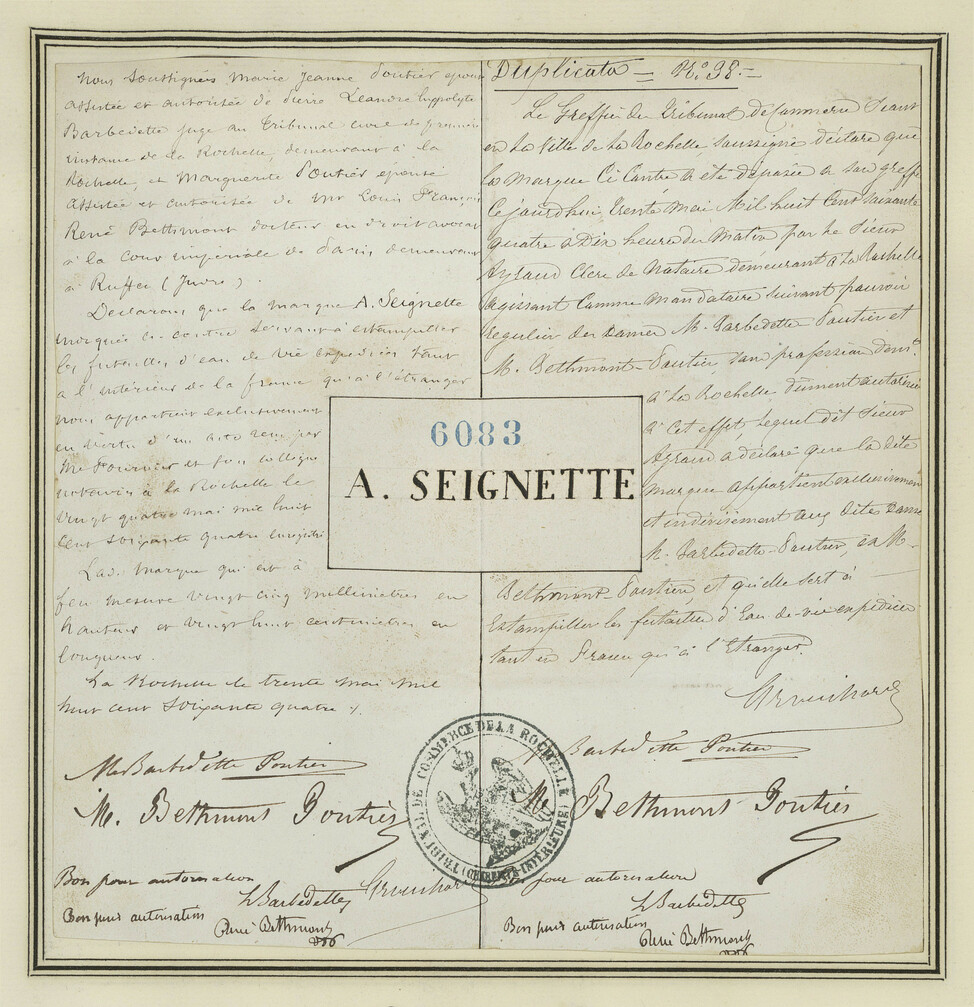 Nous soussignés Marie Jeanne Poutier épouse
assistée et autorisée de Pierre Léandre hyppolyte
Barbedette juge au tribunal civil de première
instance de la Rochelle, demeurant à la
Rochelle, et Marguerite Poutier épouse
assistée et autorisée de Mr Louis François
René Bethmont docteur en droit avocat
à la cour impériale de Paris demeurant
à Ruffec
Déclarons que la marque A. Seignette
marquée ci contre servant à estampiller
les futailles d'eau de vie expédiées tant
a l'intérieur de la france qu'à l'étranger
nous appartient exclusivement
en vertu d'un acte reçu par
Me Fournier et son collègue
notaires à la Rochelle le
vingt quatre mai mil huit
cent soixante quatre enregistré
Lad. marque qui est à
feu mesure vingt cinq millimètres en
hauteur et vingt huit centimètres en
longueur.
La Rochelle le trente mai mil
huit cent soixante quatre /.
M Barbedette Poutier
M. Bethmont Poutier
Bon pour autorisation
L Barbedette
Bon pour autorisation
René Bethmont
Duplicata = No. 98. =
Le Greffier du Tribunal de Commerce séant
en la Ville de La Rochelle, soussigné déclare que
la Marque Ci Contre a été déposée a son greffe
Cejourdhui, trente Mai Mil huit Cent Soixante
quatre à Dix heures du Matin par le Sieur
Ayraud Clerc de Notaire demeurant à La Rochelle
agissant Comme Mandataire suivant pouvoir
régulier des Dames M. Barbedette-Poutier et
M. Bethmont-Poutier, sans profession demt.
à La Rochelle dûment autorisées
à Cet effet, Lequel dit Sieur
Ayraud a déclaré que la dite
Marque appartient exclusivement
et indivisément aux dites Dames
M. Barbedette-Poutier, et M.
Bethmont-Poutier, et qu'elle sert à
Estampiller les futailles d'Eau-de-vie expédiées
tant en France qu'à l'Etranger.
Barbedette Poutier
M. Bethmont Poutier
pour autorisation
L Barbedette
Bon pour autorisation
René Bethmont
6083
A. SEIGNETTE
TRIBUNAL DE COMMERCE DE LA ROCHELLE
(CHARENTE-INFERIEURE)